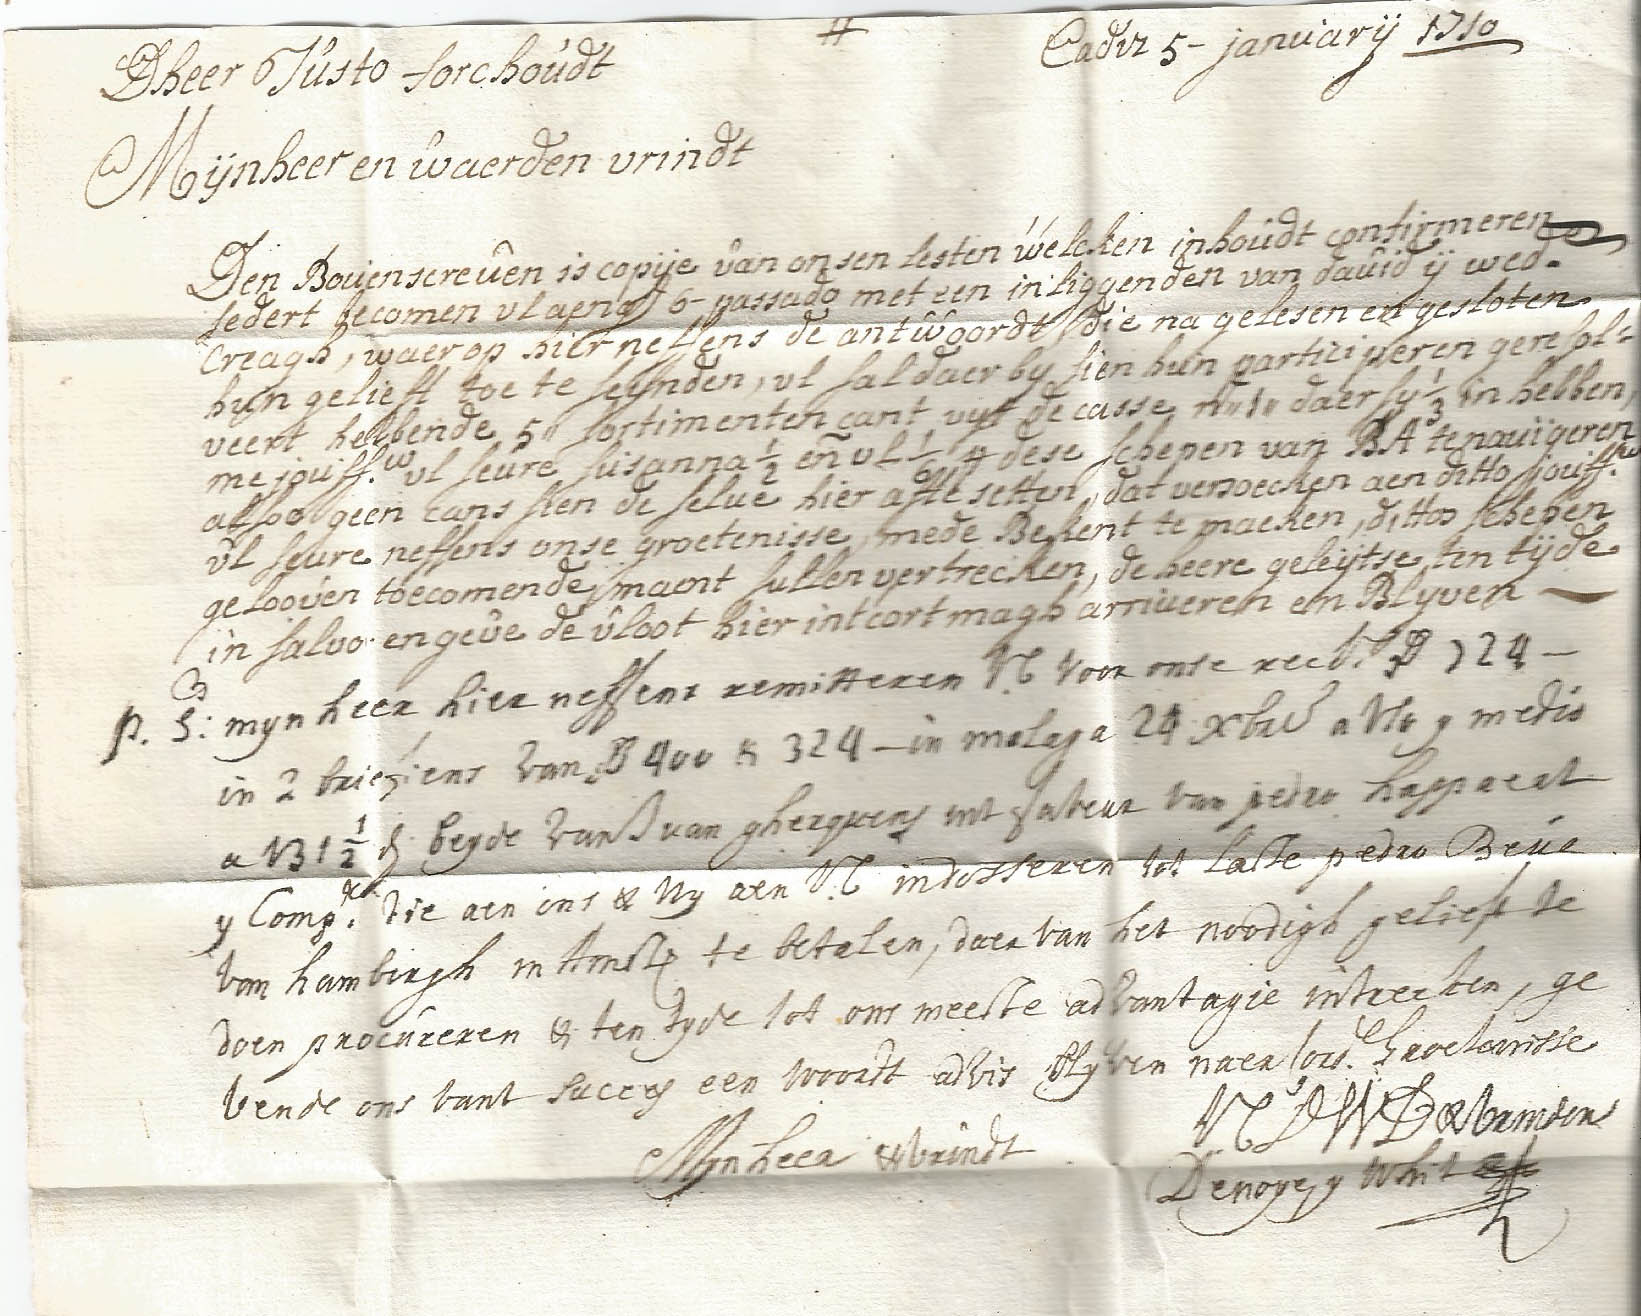 Cadiz 5 - januarij 1710
Dheer Justo forchoudt
Mijnheer en waerden vrindt
Den Bovenscreven is copije van onsen lesten welcken inhoudt confirmeren
sedert becomen vl aengen 6 - passado met een inliggenden van david ij wed.e
Creagh, waer op hier neffens de antwoordt, die na gelesen en gesloten
hun gelieft toe te seijnden, vl sal daer by sien hun participeren geresol=
veert hebbende 5 sortimenten cant vyt de casse daer sij 1/3 in hebben,
mejouff.w vl seure susanna 1/2 en vl dese schepen van BA te navigeren
alsoo geen cans sien de selve hier aff te setten, dat versoecken aen ditto jouff.w
vl seure neffens onse groetenisse, mede Bekent te maeken, dittos schepen
gelooven toecomende maent sullen vertrecken, de heere geleijtse, ten tijde
in salvo en geve de vloot hier int cort magh arriveren en Blyven
P. S: mynheer hier neffens remitteren Vl voor onse reck. 724 -
in 2 briefiens van 400 & 324 - in malaga 24 xbre a y medio
a 131 1/2 beyde van Juan gherquens int faveur van pedro happaert
y Comp. die aen ons & wy aen Vl indosseren tot laste pedro Beue
van hamburgh in Amst te betalen, daer van het noodigh gelieft te
doen procureren & ten tyde tot ons meeste advantagie intrecken, ge
vende ons vant succes een woordt advis blyven naer groetenisse
Mynheer & vrindt
Vl D W D & vrinden
Denoyes y Whit